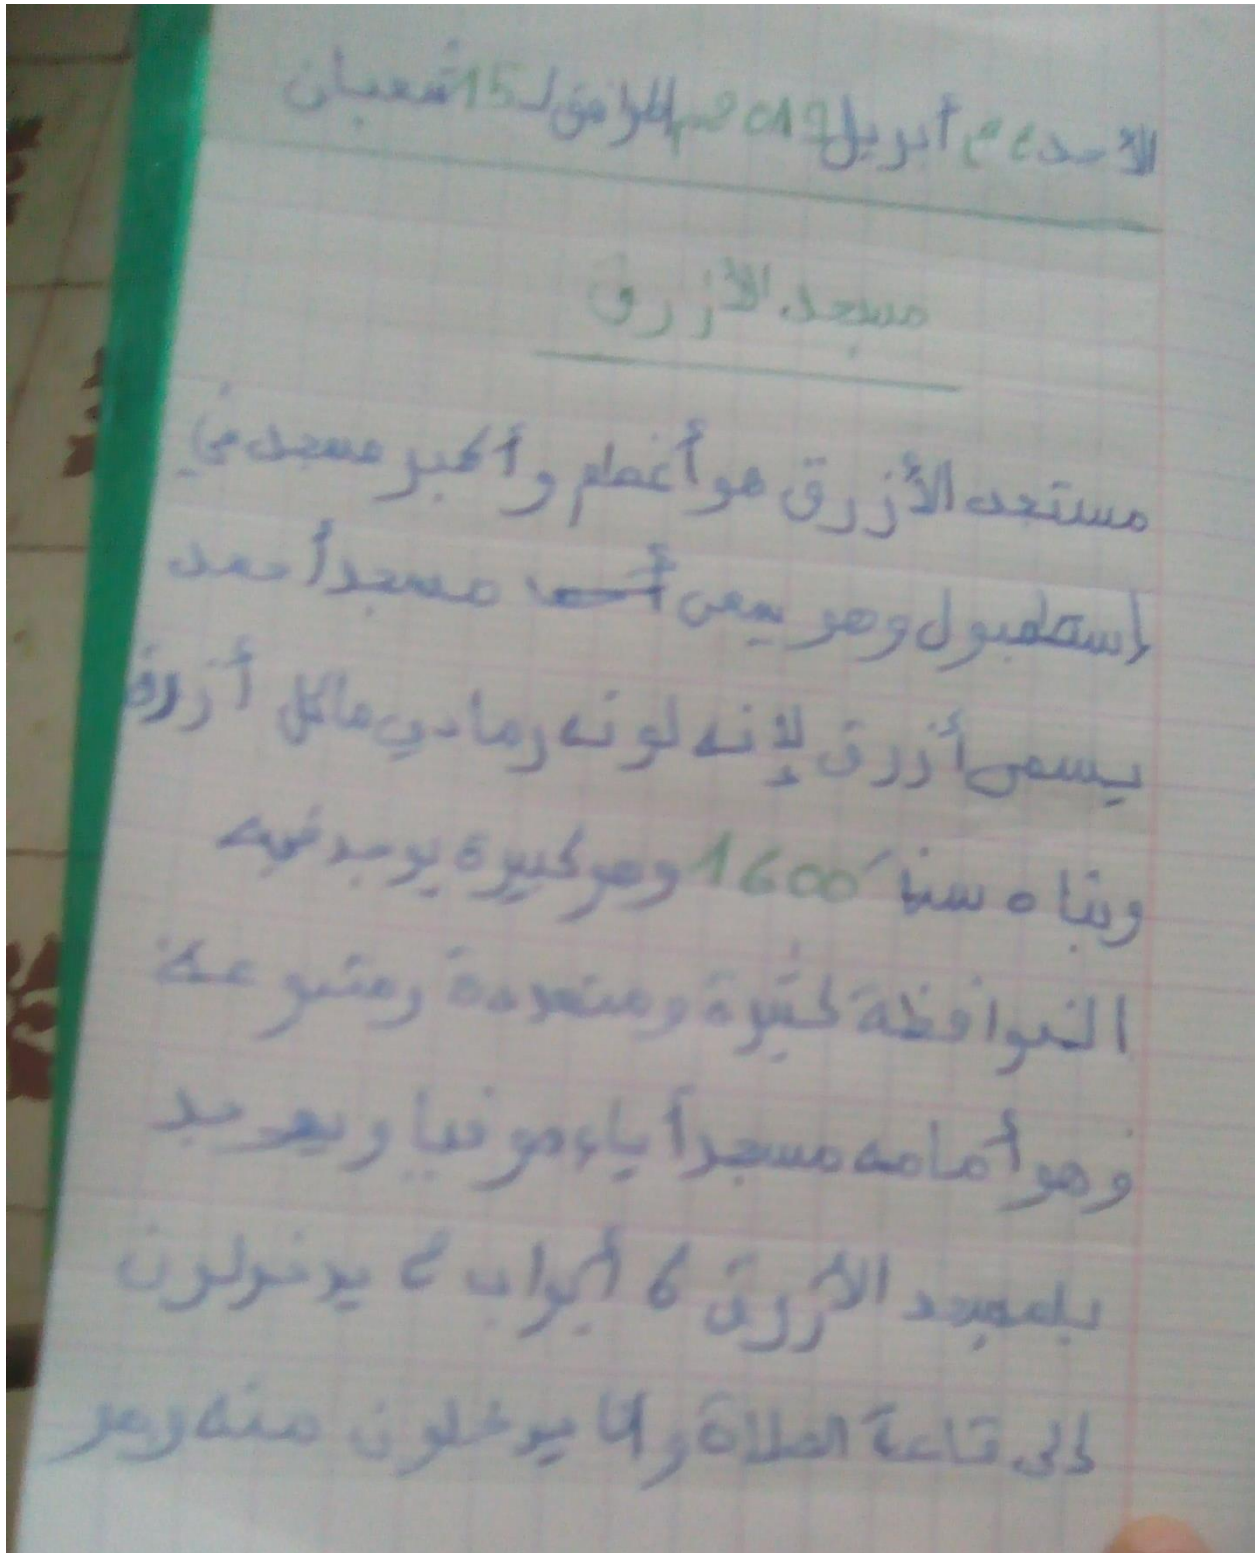 الأحد أبريل 2019 الموافق لـ 15 شعبان
مسجد الأزرق
مستجد الأزرق هو أعظم وأكبر مسجد في
إسطمبول وهو مسجد أحمد
يسمى أزرق لإنه لونه رمادي مائل أزرق
وبناه سنة 1600 وهو كبيرة يوجد فيه
النوافظة كثيرة ومتعددة ومتنوعة
وهو أمامه مسجد أياصوفيا ويوجد
بلمسجد الأزرق 6 أبواب يدخولون
إلى قاعة الصلاة و يدخلون منه وهو